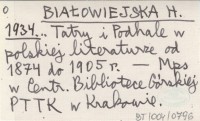 o BIAŁOWIEJSKA H.
1934.. Tatry i Podhale w
polskiej literaturze od
1874 do 1905 r. — Mps
w Centr. Bibliotece Górskiej
PTTK w Krakowie.
BT/004/0796